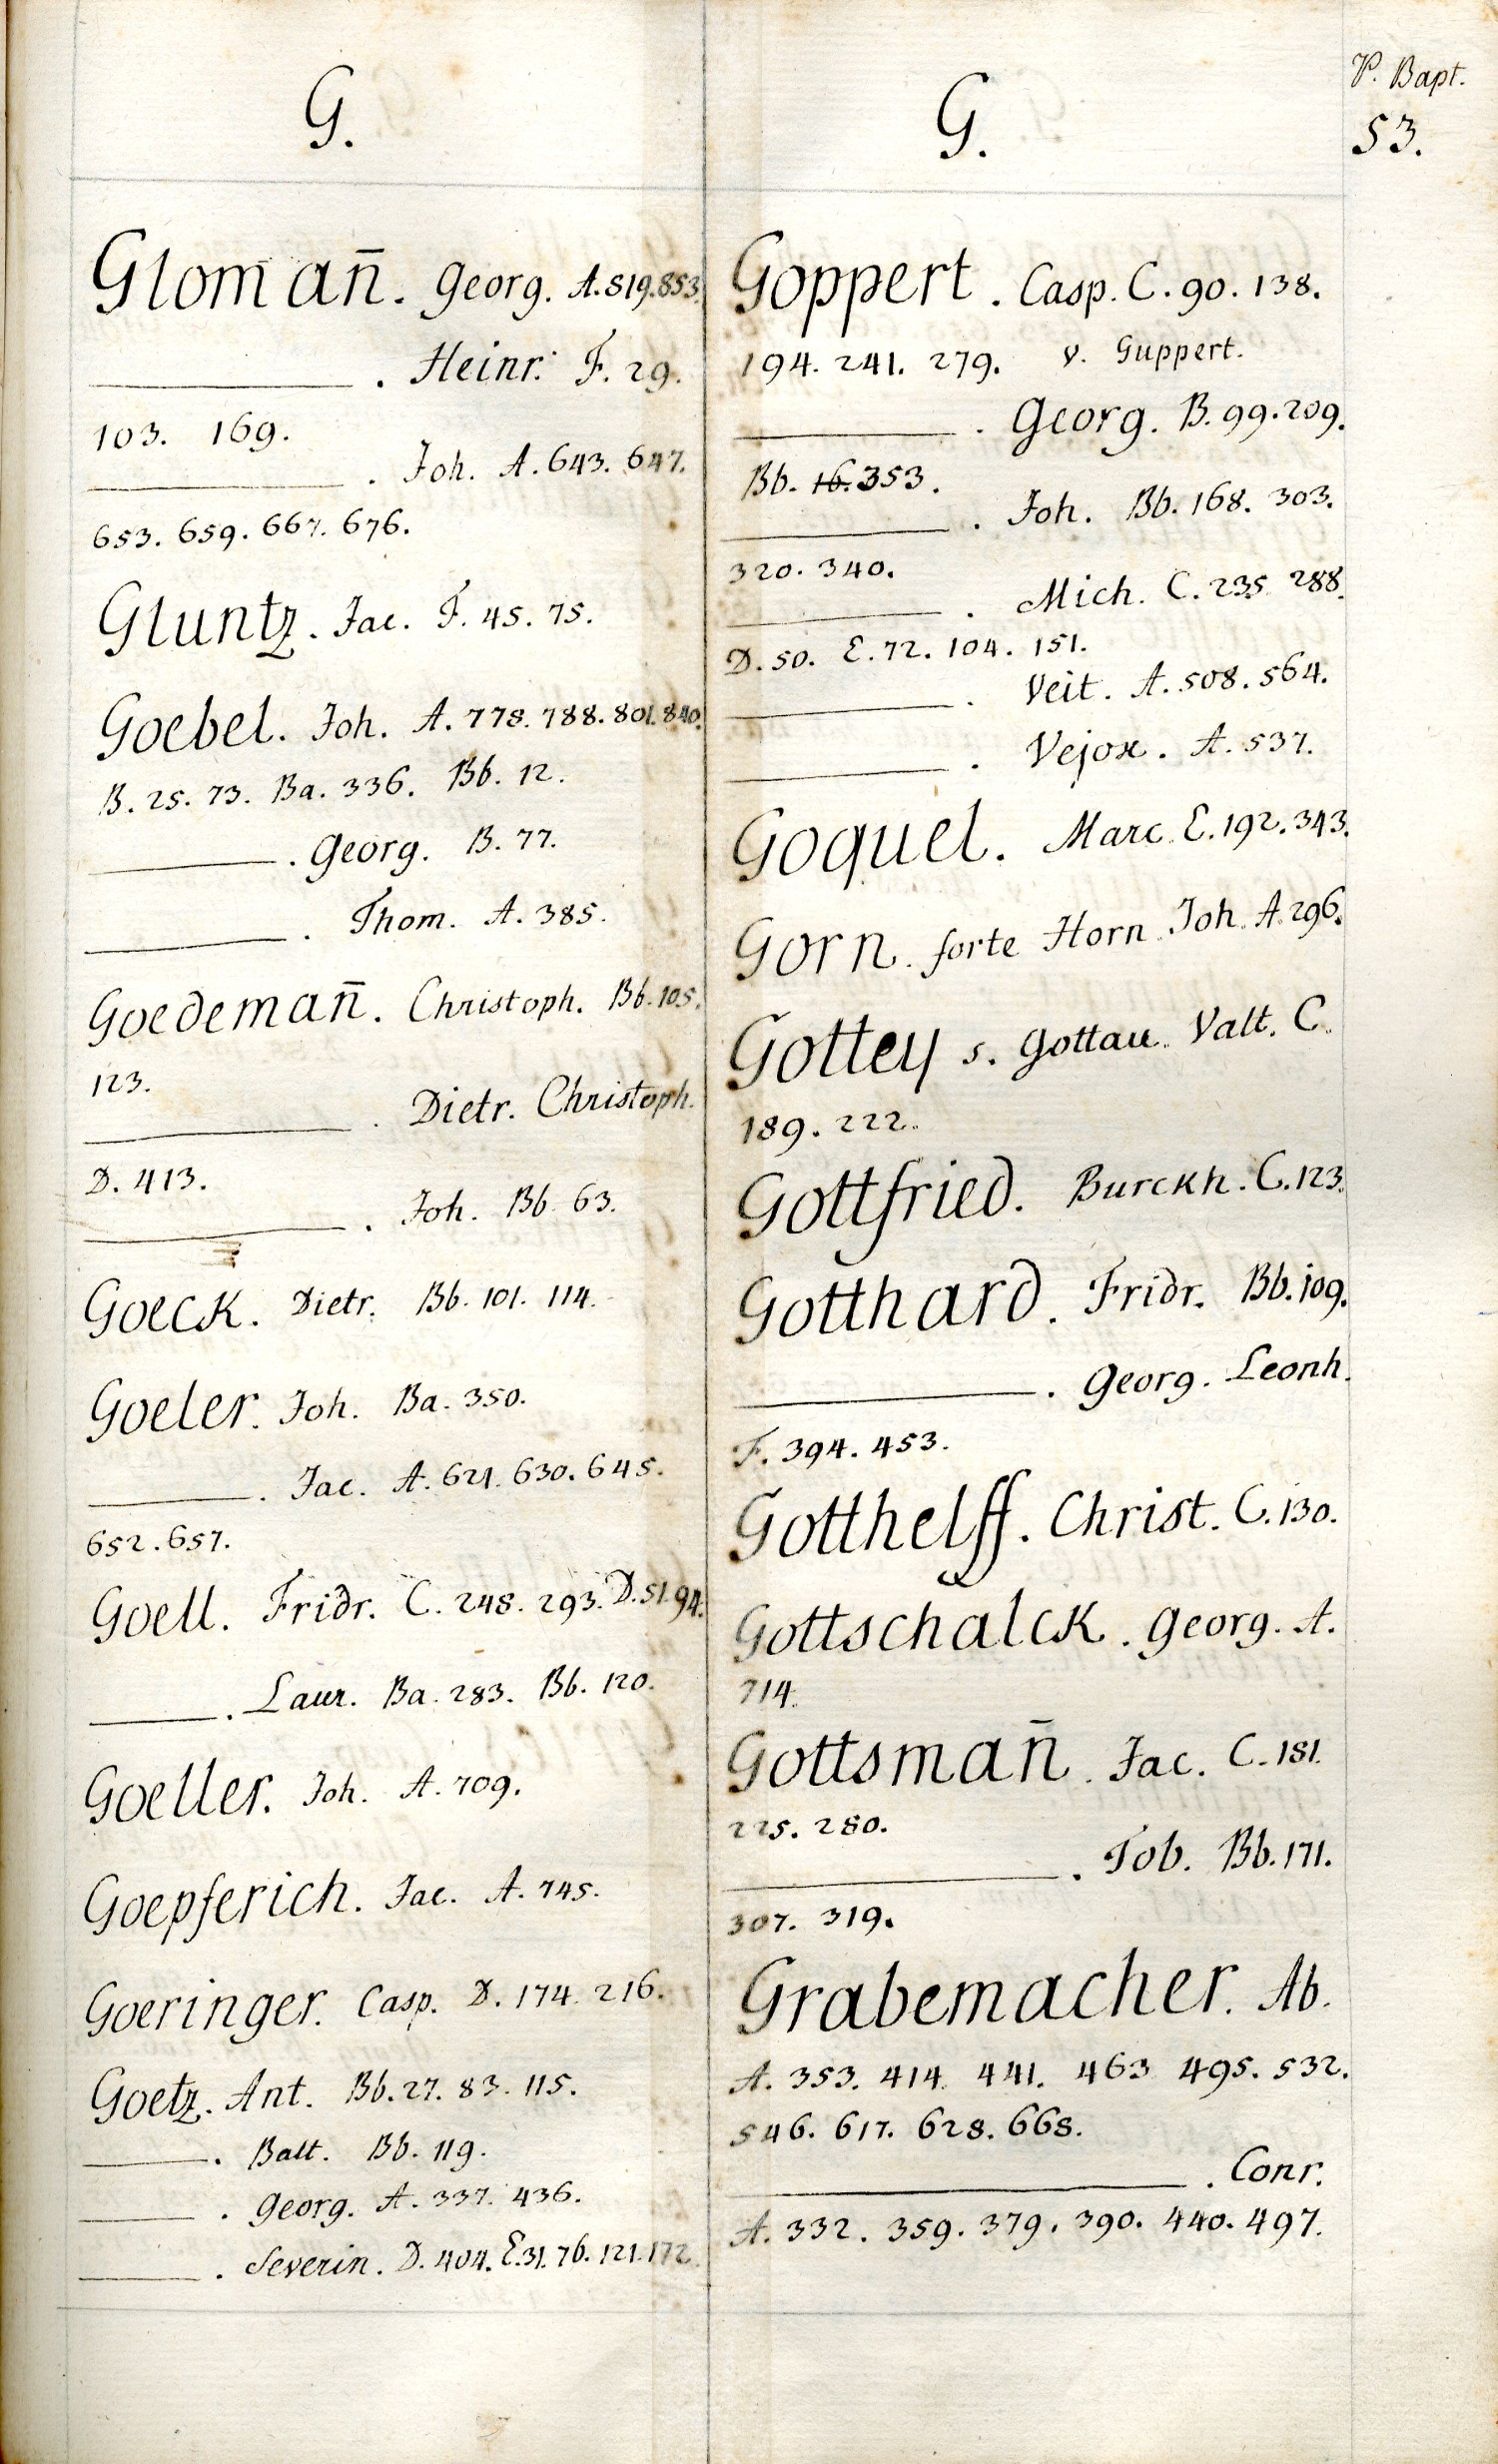 P. Bapt.
53.
G.
Glomañ. Georg. A. 819. 853.
———. Heinr. F. 29.
103. 169.
———. Joh. A. 643. 647.
653. 659. 667. 676.
Gluntz. Jac. F. 45. 75.
Goebel. Joh. A. 778. 788. 801. 840.
B. 25. 73. Ba. 336. Bb. 12.
———. Georg. B. 77.
———. Thom. A. 385.
Goedemañ. Christoph. Bb. 105.
123.
———. Dietr. Christoph.
D. 413.
———. Joh. Bb. 63.
Goeck. Dietr. Bb. 101. 114.
Goeler. Joh. Ba. 350.
———. Jac. A. 621. 630. 645.
652. 657.
Goell. Fridr. C. 248. 293. D. 51. 94.
———. Laur. Ba. 283. Bb. 120.
Goeller. Joh. A. 709.
Goepferich. Jac. A. 745.
Goeringer. Casp. D. 174. 216.
Goetz. Ant. Bb. 27. 83. 115.
———. Balt. Bb. 119.
———. Georg. A. 337. 436.
———. Severin. D. 404. E. 31. 76. 121. 172.
G.
Goppert. Casp. C. 90. 138.
194. 241. 279. v. Guppert.
———. Georg. B. 99. 209.
Bb. 16. 353.
———. Joh. Bb. 168. 303.
320. 340.
———. Mich. C. 235. 288.
D. 50. E. 72. 104. 151.
———. Veit. A. 508. 564.
———. Vejox. A. 537.
Goquel. Marc. E. 192. 343.
Gorn. forte Horn. Joh. A. 296.
Gottey s. Gottau. Valt. C.
189. 222.
Gottfried. Burckh. C. 123.
Gotthard. Fridr. Bb. 109.
———. Georg. Leonh.
F. 394. 453.
Gotthelff. Christ. C. 130.
Gottschalck. Georg. A.
714.
Gottsmañ. Jac. C. 181.
225. 280.
———. Tob. Bb. 171.
307. 319.
Grabemacher. Ab.
A. 353. 414. 441. 463. 495. 532.
546. 617. 628. 668.
———. Conr.
A. 332. 359. 379. 390. 440. 497.